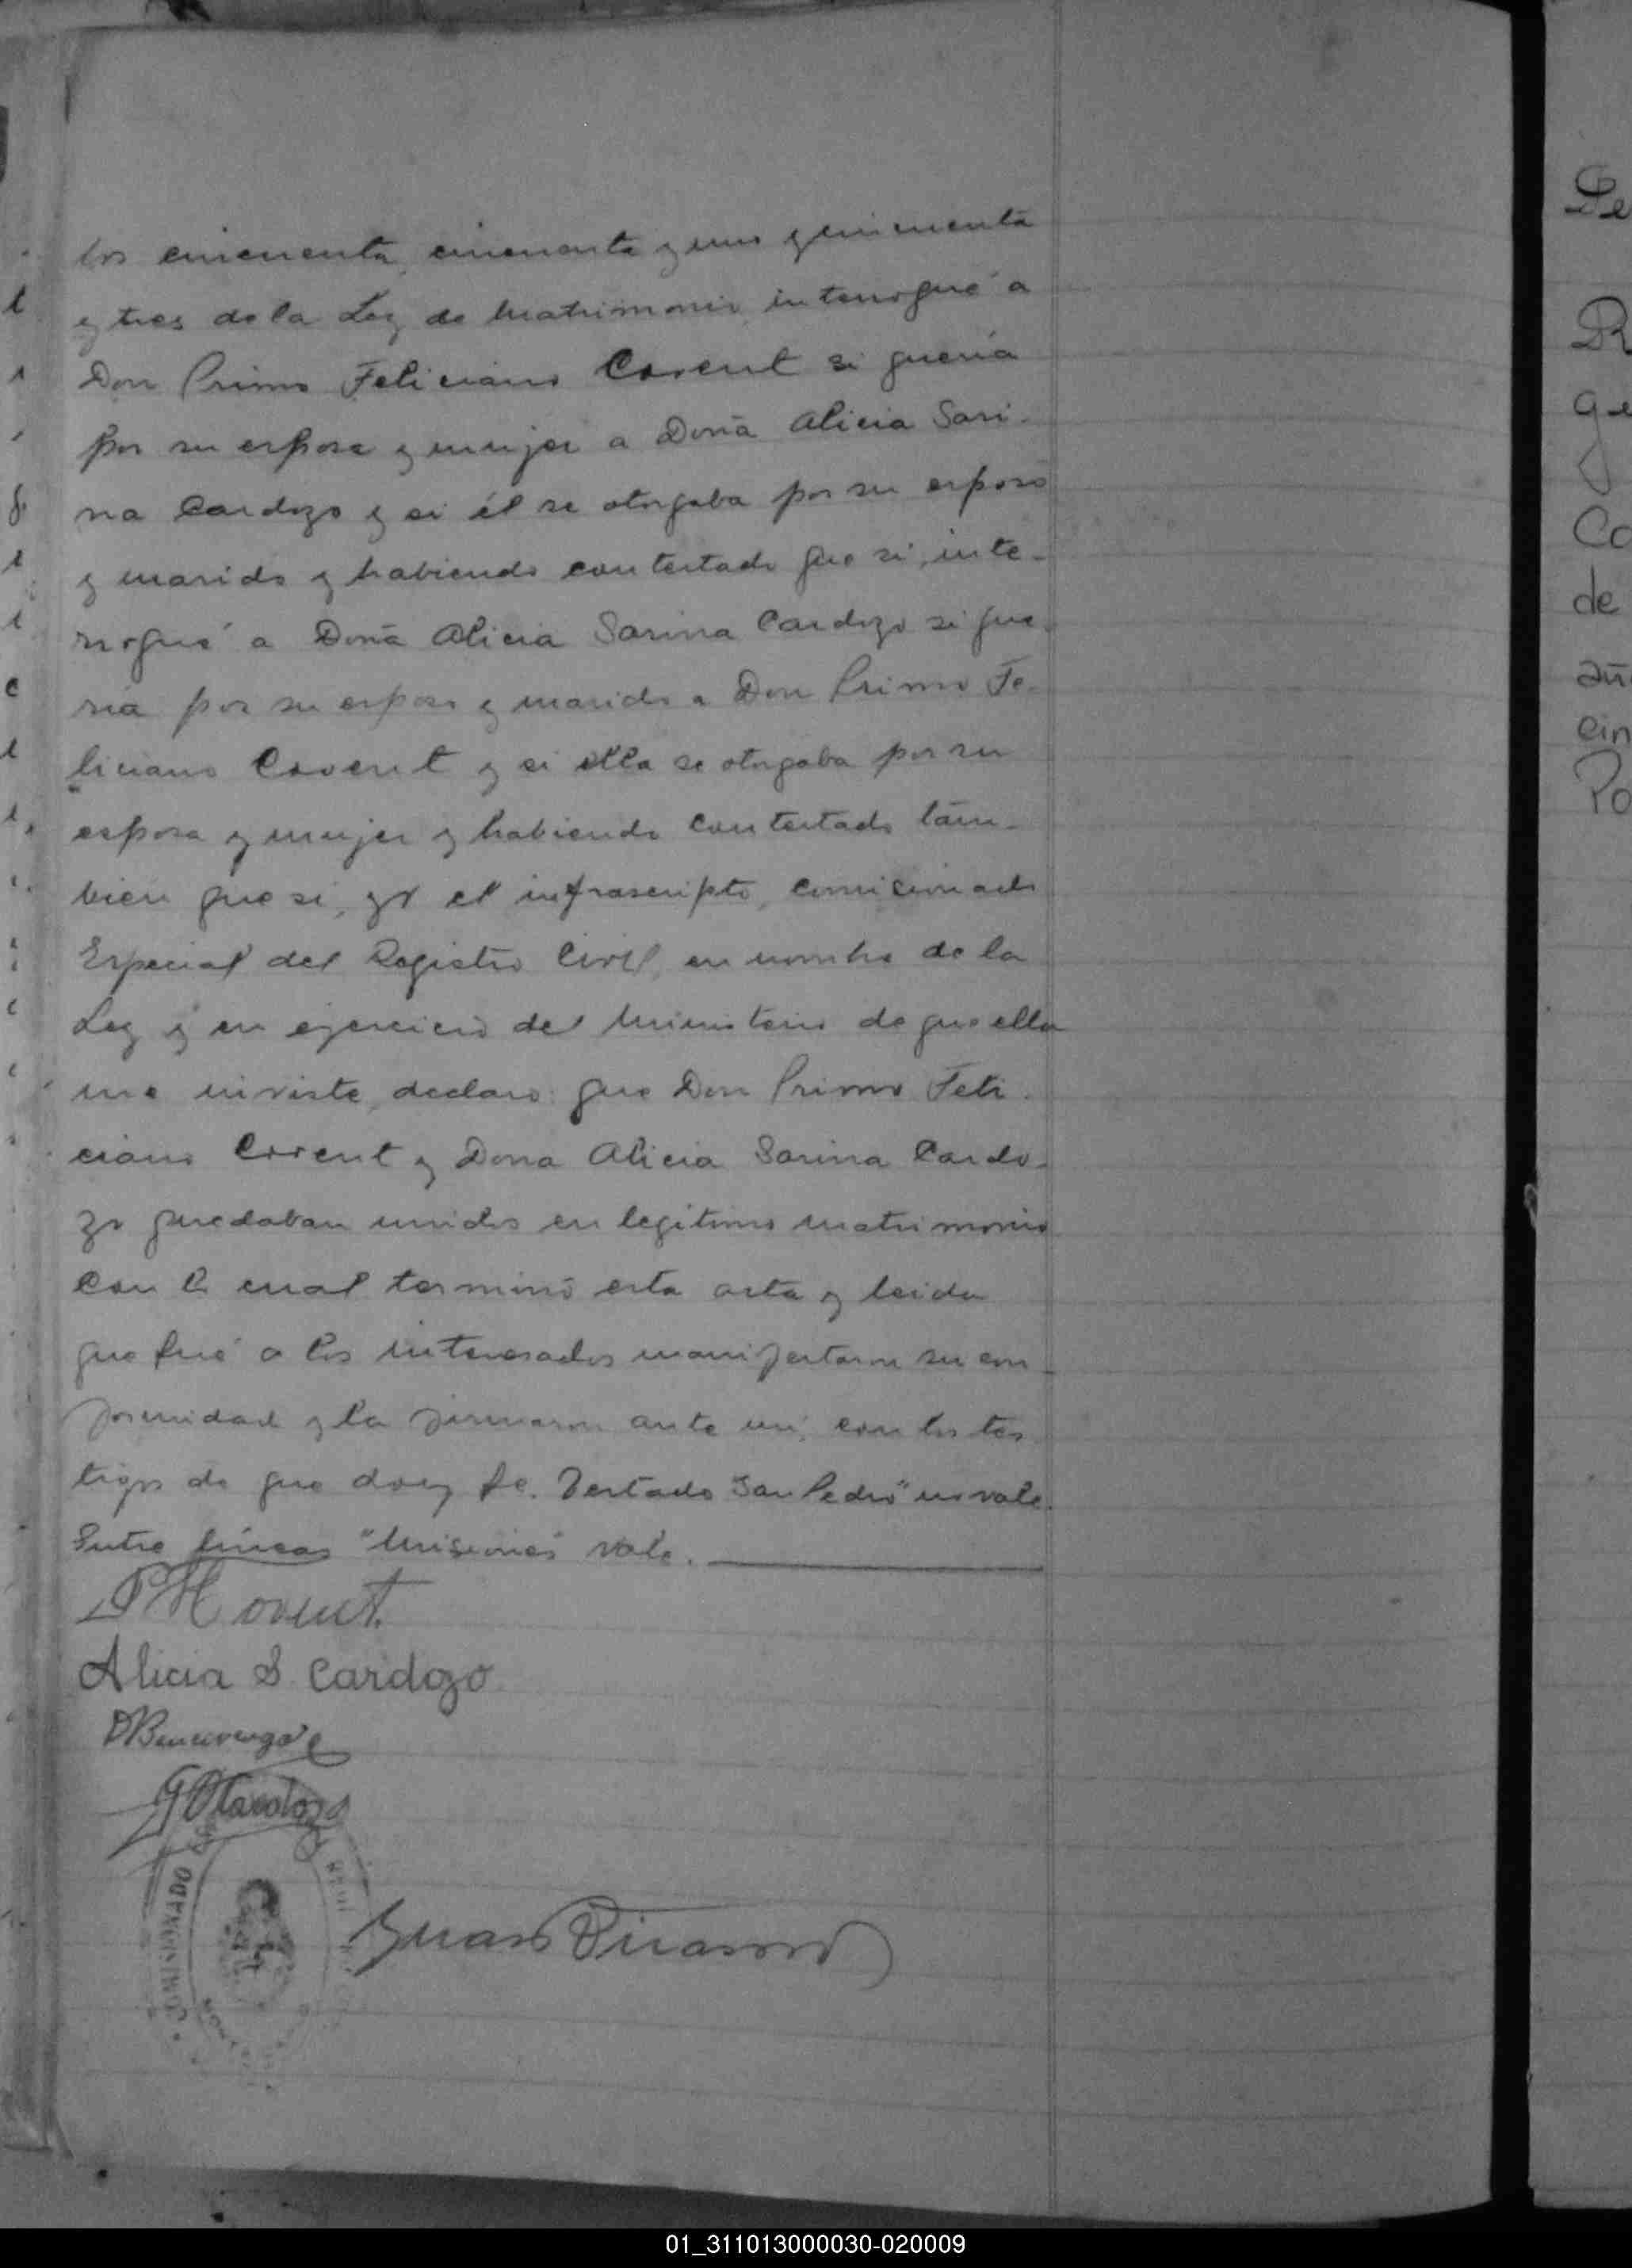 los cincuenta, cincuenta y uno y cincuenta
y tres de la Ley de Matrimonio, interrogué a
Don Primo Feliciano Covent si queria
por su esposa y mujer a Doña Alicia Sari-
na Cardozo y si él se otorgaba por su esposo
y marido y habiendo contestado que si, inte-
rrogué a Doña Alicia Sarina Cardozo si que-
ria por su esposo y marido a Don Primo Fe-
liciano Covent y si ella se otorgaba por su
esposa y mujer y habiendo contestado tam-
bien que si, yo el infrascripto, Comicionado
Especial del Registro Civil, en nombre de la
Ley y en ejercicio del Ministerio de que ella
me inviste, declaro: que Don Primo Feli-
ciano Covent y Dona Alicia Sarina Cardo-
zo quedaban unidos en legitimo matrimonio
Con lo cual terminó esta acta y leida
que fué a los interesados manifestaron su con-
formidad y la firmaron ante mi, con los tes
tigos de que doy fe. Testado "San Pedro" no vale.
Entre lineas "Misiones" vale.
Alicia S. Cardozo
Juan
l
i
g
l
c
l
Pe
R
ge
Co
de
añ
cin
Po
01_311013000030-020009